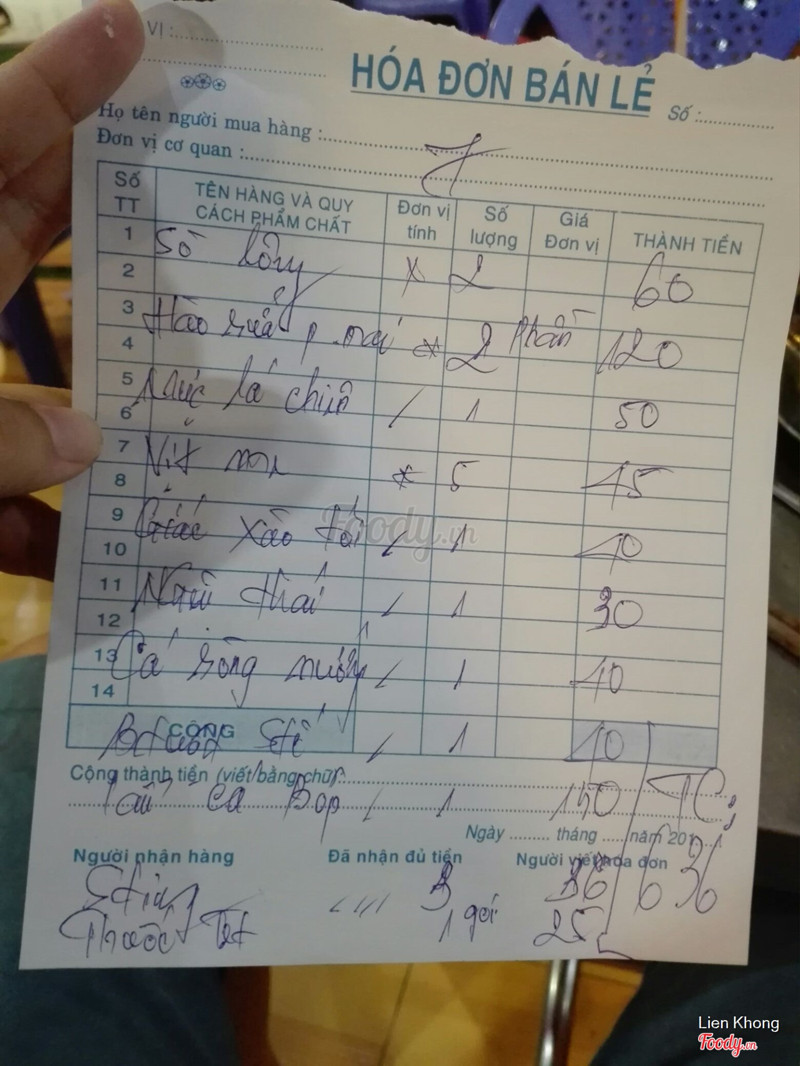 VỊ :
HÓA ĐƠN BÁN LẺ
Số :
Họ tên người mua hàng :
Đơn vị cơ quan :
7
Số TT
TÊN HÀNG VÀ QUY CÁCH PHẨM CHẤT
Đơn vị tính
Số lượng
Giá Đơn vị
THÀNH TIỀN
1
Sò lông x 2 60
2
3
Hào sữa p mai * 2 phần 120
4
5
Mực lá chiên / 1 50
6
7
Vịt * 5 45
8
9
xào tỏi / 1 40
10
11
thái / 1 30
12
13
Cá nướng / 1 40
14
CỘNG
/ 1 40
Cộng thành tiền (viết bằng chữ) :
Lẩu cá Bóp / 1 150
Ngày ........ tháng ..... năm 201
Người nhận hàng
Đã nhận đủ tiền
Người viết hóa đơn
Sting 3 36 636
Thuốc 1 gói 25
Foody.vn
Lien Khong
Foody.vn